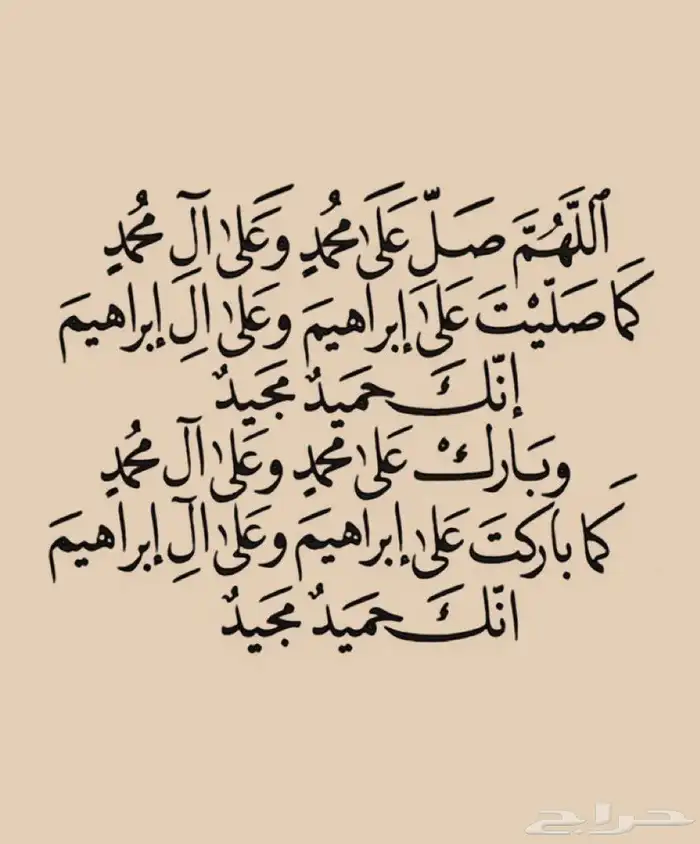 ٱللَّهُمَّ صَلِّ عَلَىٰ مُحَمَّدٍ وَعَلىٰ آلِ مُحَمَّدٍ
كَمَا صَلَّيْتَ عَلىٰ إبراهيمَ وعَلىٰ الِ إبراهيمَ
إنّكَ حَمَيدٌ مَجَيدٌ
وبَاركْ عَلىٰ محمدٍ وعَلىٰ آل محمدٍ
كَما باركتَ عَلىٰ إبراهيمَ وعَلىٰ آلِ إبراهيمَ
انّكَ حمَيدٌ مجَيدٌ
حراج